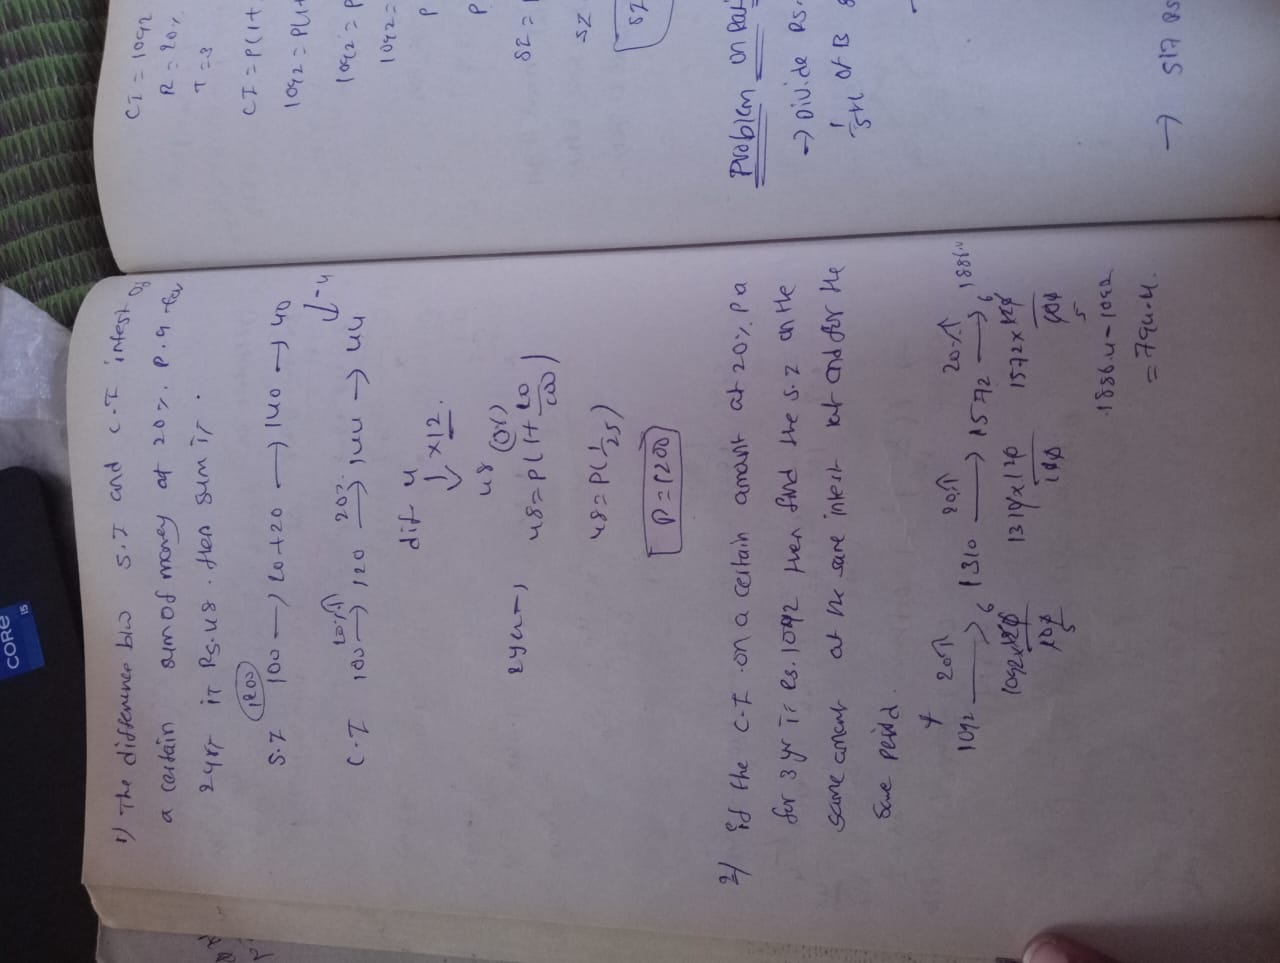 1) The difference b/w S.I and C.I intest of
a certain sum of money at 20% P.a for
2yrs is Rs.48. then sum is.
1200
S.I 100 → 20+20 → 140 → 40
↓-4
C.I 100 20%↑ → 120 20% → 144 → 44
dif 4
↓ ×12
48
2years, (or)
48 = P(1+20/100)
48 = P(1/25)
P = 1200
2) if the C.I on a certain amount at 20% Pa
for 3yr is Rs.1092 then find the S.I on the
same amount at the same intest rat and for the
same period.
1092 20%↑ → 1310 20%↑ → 1572 20%↑ → 1886.4
1092×120/100 6 5 1310×120/100 1572×120/100 6 5
1886.4-1092
= 794.4.
CI = 1092
R = 20%
T = 3
CI = P(1+
1092 = P(1+
1092 = P
1092 =
P
P
SI =
SI
SI
Problem on
→ Divide Rs.
1/5th of B
→ 517 Rs
CORE i5